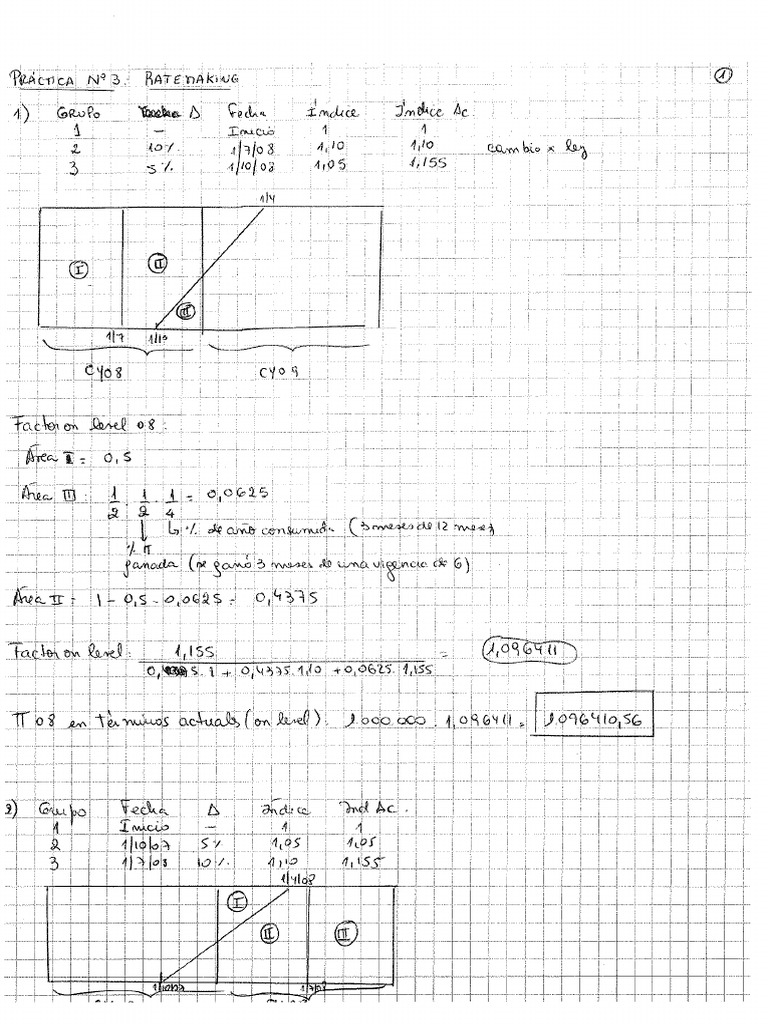 PRÁCTICA Nº 3: RATEMAKING
1
1) GRUPO Δ Fecha Índice Índice Ac
1 — Inicio 1 1
2 10% 1/7/08 1,10 1,10 cambio x ley
3 5% 1/10/08 1,05 1,155
1/4
I II III
1/7 1/10
CY08 CY09
Factor on level 08:
Área I = 0,5
Área III: 1/2 . 1/2 . 1/4 = 0,0625
% de año consumido (3 meses de 12 meses
% π
ganada (se ganó 3 meses de una vigencia de 6)
Área II = 1 - 0,5 - 0,0625 = 0,4375
Factor on level: 1,155 / 0,5.1 + 0,4375.1,10 + 0,0625.1,155 = 1,096411
π 08 en términos actuales (on level): 1.000.000 . 1,096411 = 1.096410,56
2) Grupo Fecha Δ Índice Ind Ac.
1 Inicio — 1 1
2 1/10/07 5% 1,05 1,05
3 1/7/08 10% 1,10 1,155
1/4/08
I II III
1/10/07 1/7/08